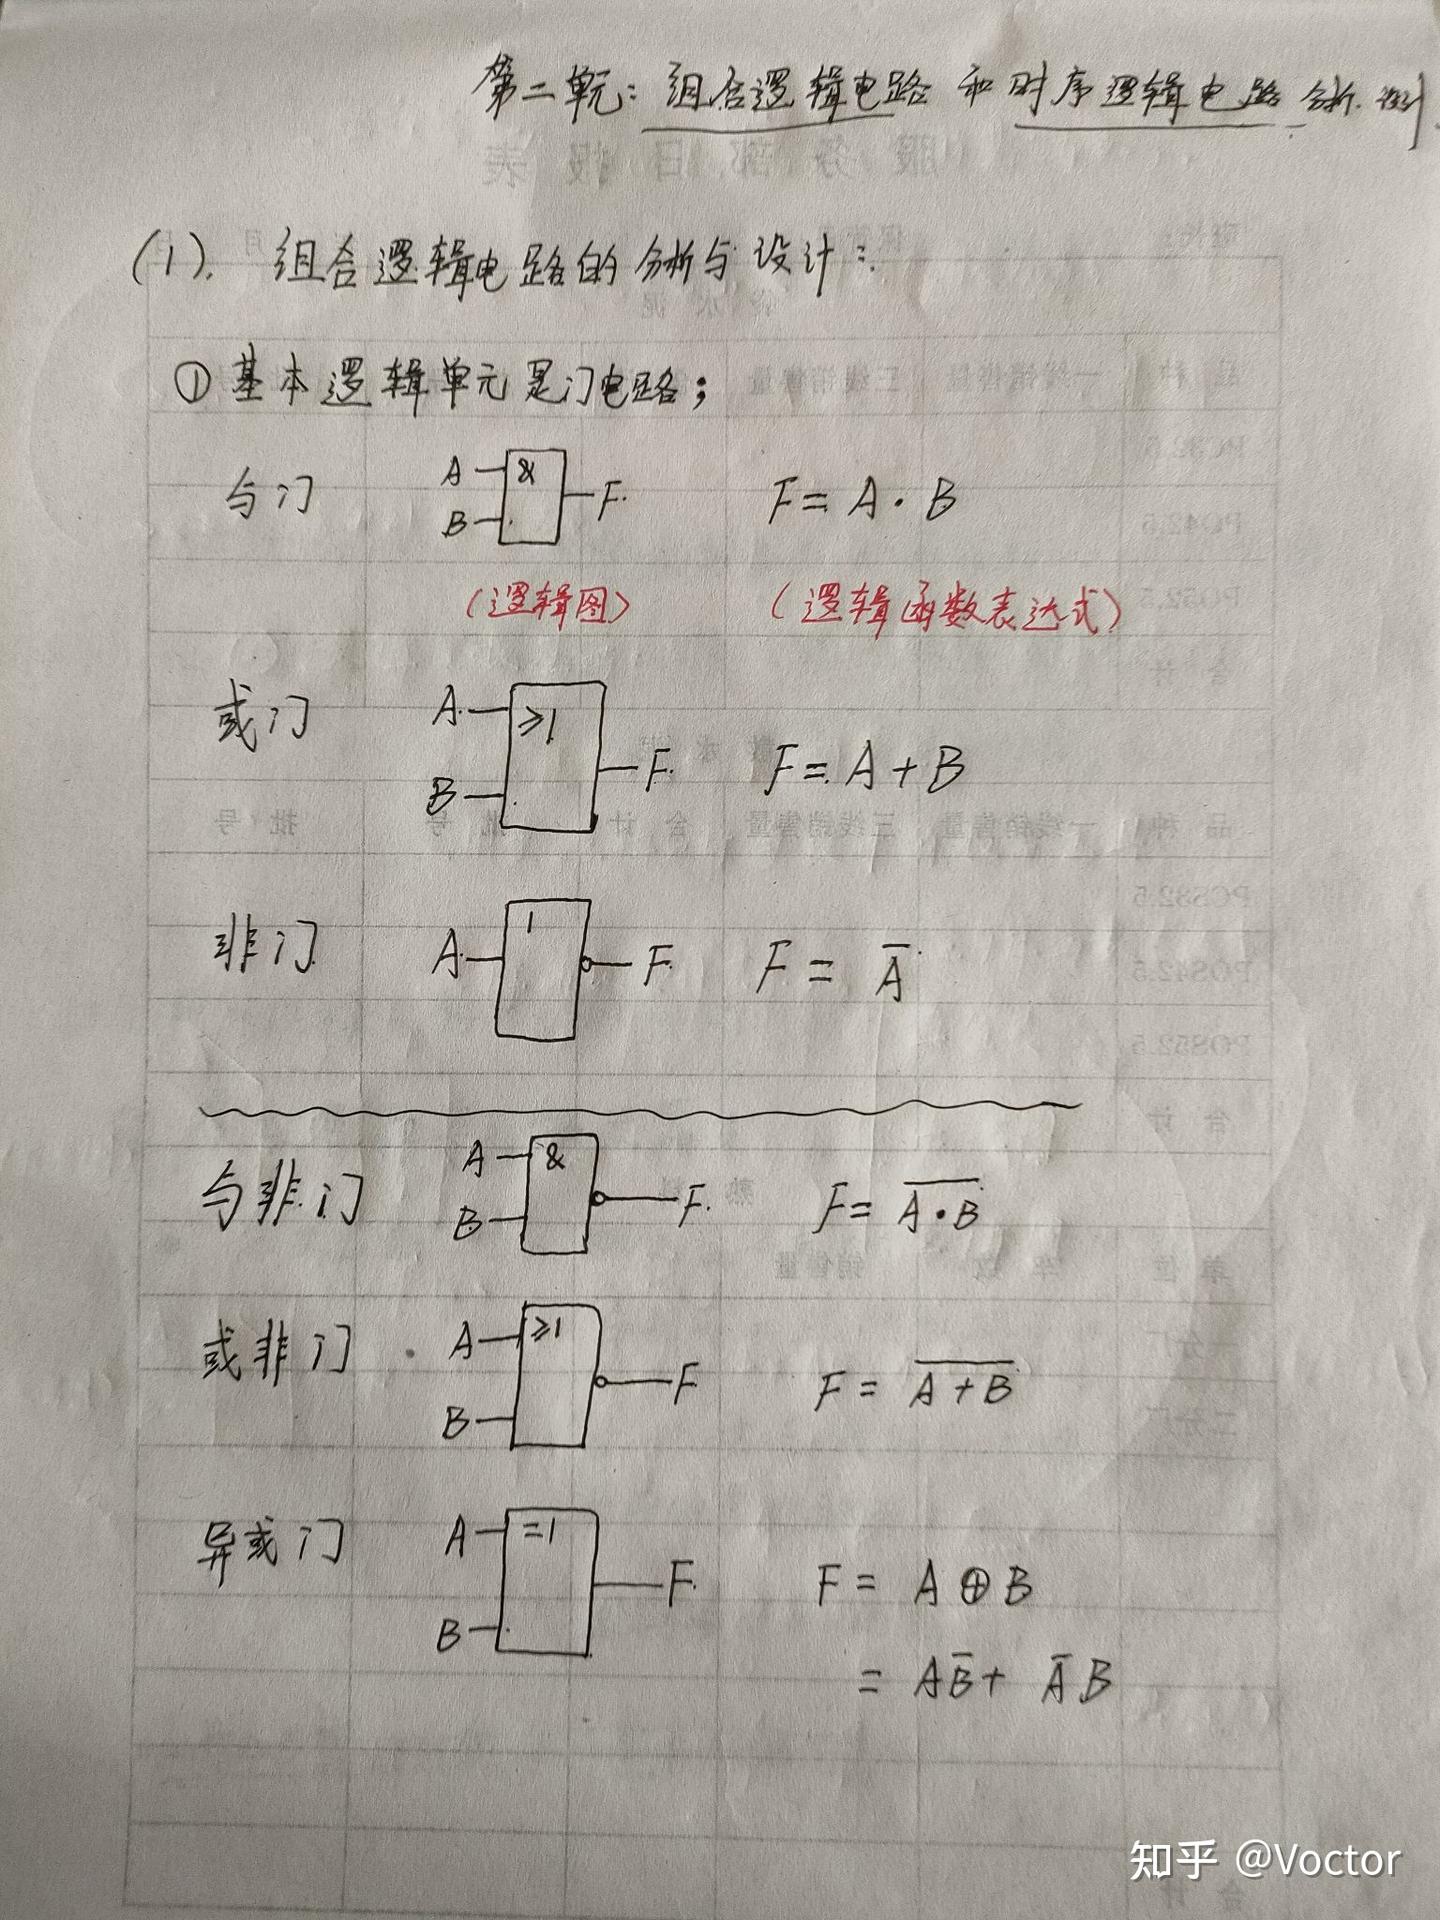 第二单元：组合逻辑电路和时序逻辑电路分析
(1). 组合逻辑电路的分析与设计：
①基本逻辑单元是门电路；
与门 A B & F F = A · B
(逻辑图) (逻辑函数表达式)
或门 A B ≥1 F F = A + B
非门 A 1 F F = A̅
与非门 A B & F F = \overline{A·B}
或非门 A B ≥1 F F = \overline{A+B}
异或门 A B =1 F F = A ⊕ B
= AB̅ + A̅B
知乎 @Voctor